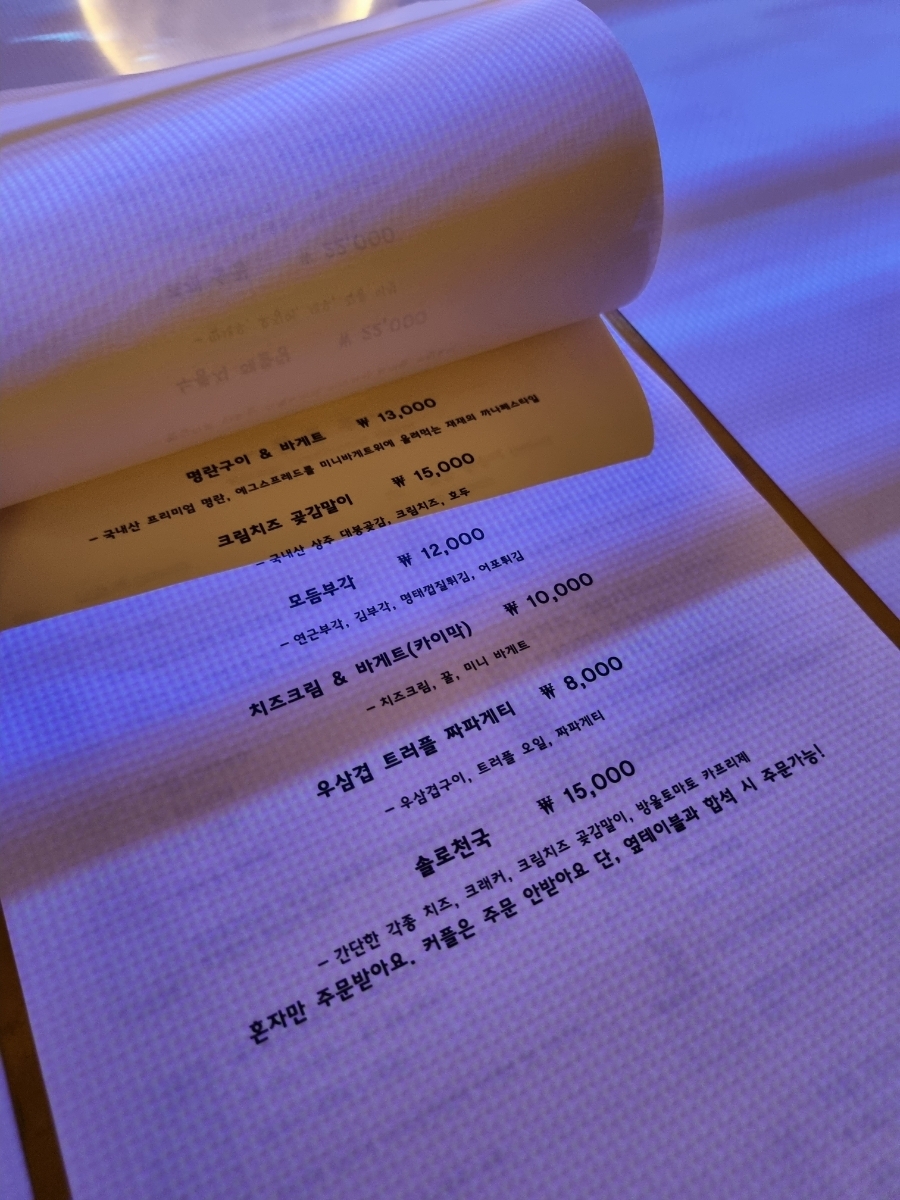 명란구이 & 바게트 ₩ 13,000
- 국내산 프리미엄 명란, 에그스프레드를 미니바게트위에 올려먹는 재재의 까나페스타일
크림치즈 곶감말이 ₩ 15,000
- 국내산 상주 대봉곶감, 크림치즈, 호두
모듬부각 ₩ 12,000
- 연근부각, 김부각, 명태껍질튀김, 어포튀김
치즈크림 & 바게트(카이막) ₩ 10,000
- 치즈크림, 꿀, 미니 바게트
우삼겹 트러플 짜파게티 ₩ 8,000
- 우삼겹구이, 트러플 오일, 짜파게티
솔로천국 ₩ 15,000
- 간단한 각종 치즈, 크래커, 크림치즈 곶감말이, 방울토마토 카프리제
혼자만 주문받아요. 커플은 주문 안받아요 단, 옆테이블과 합석 시 주문가능!